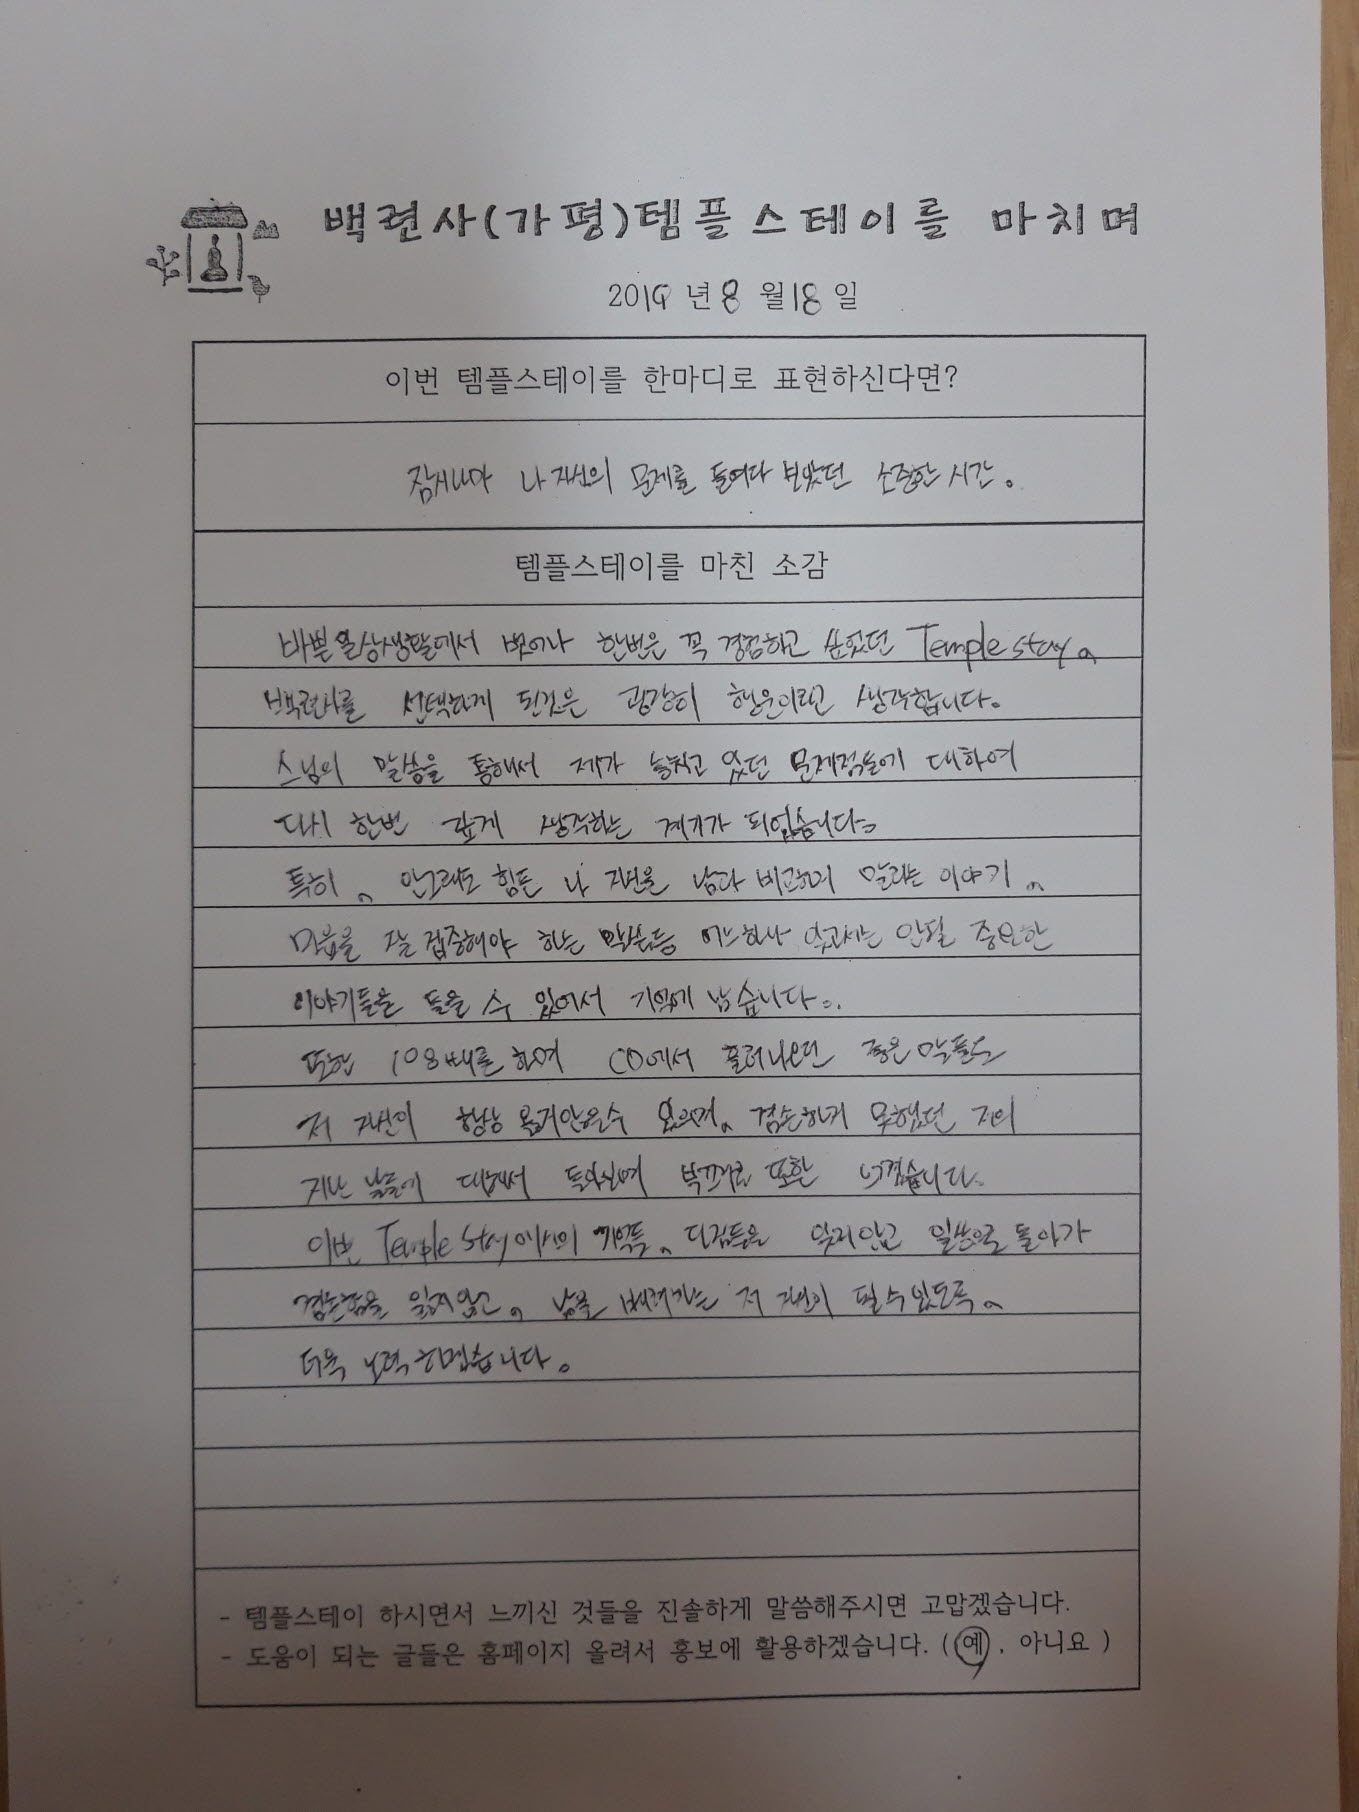 백련사(가평)템플스테이를 마치며
2019 년 8 월 18 일
이번 템플스테이를 한마디로 표현하신다면?
잠시나마 나 자신의 문제를 들여다 보았던 소중한 시간.
템플스테이를 마친 소감
바쁜 일상생활에서 벗어나 한번은 꼭 경험하고 싶었던 Temple stay,
백련사를 선택하게 된것은 굉장히 행운이라고 생각합니다.
스님의 말씀을 통해서 제가 놓치고 있던 문제점들에 대하여
다시 한번 깊게 생각하는 계기가 되었습니다.
특히, 안그래도 힘든 나 자신을 남과 비교하지 말라는 이야기,
마음을 잘 집중해야 하는 말씀등 어느하나 잊고서는 안될 중요한
이야기들을 들을 수 있어서 기억에 남습니다.
또한 108배를 하며 CD에서 흘러나오던 좋은 말들도
저 자신이 항상 옳지않을수 있으며, 겸손하지 못했던 저의
지난 날들에 대해서 돌아보며 부끄러움 또한 느꼈습니다.
이번 Temple stay에서의 기억들, 다짐들을 잊지않고 일상으로 돌아가
겸손함을 잃지않고, 남을 배려하는 저 자신이 될수있도록,
더욱 노력하겠습니다.
- 템플스테이 하시면서 느끼신 것들을 진솔하게 말씀해주시면 고맙겠습니다.
- 도움이 되는 글들은 홈페이지 올려서 홍보에 활용하겠습니다. ( 예 , 아니요 )